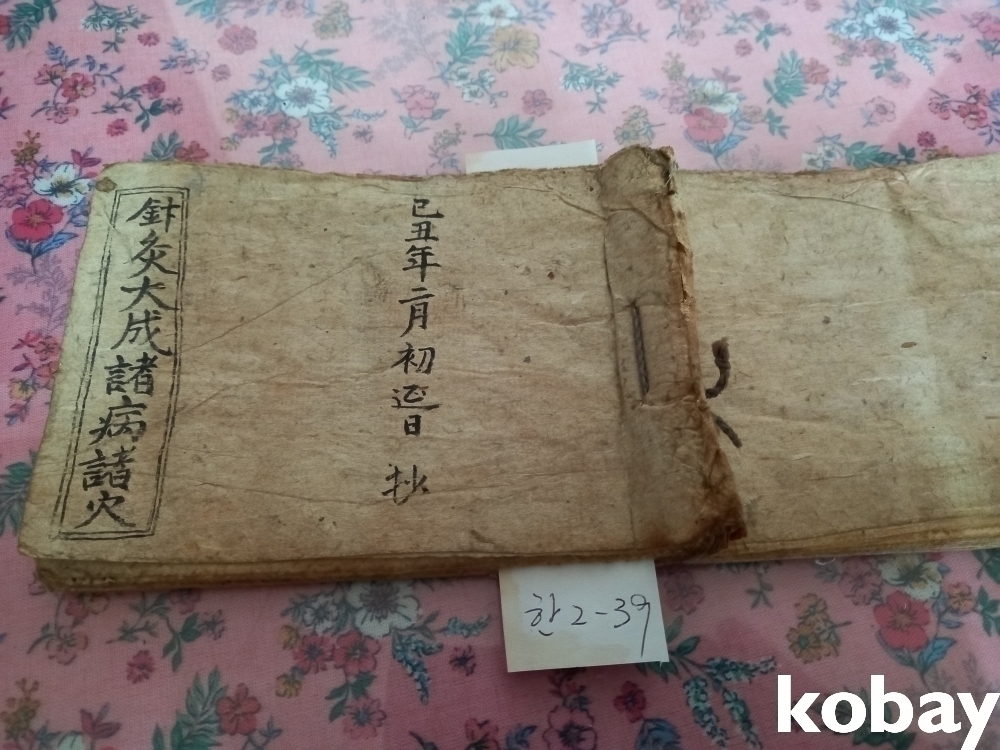 針灸大成諸病諸穴
己丑年二月初延日 抄
한2-39
kobay